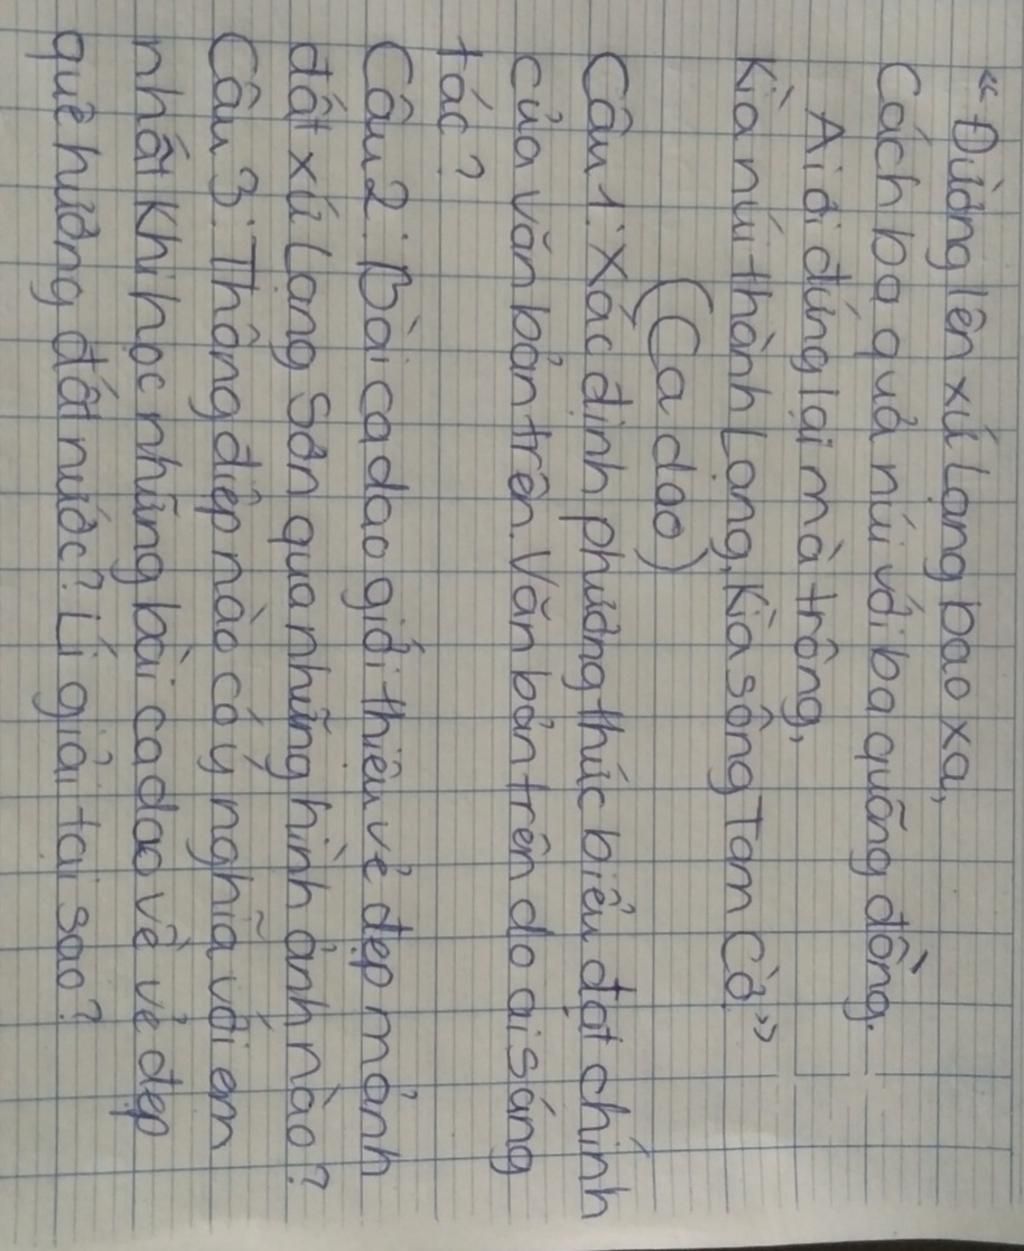 "Đường lên xứ Lạng bao xa,
Cách ba quả núi với ba quãng đồng.
Ai ơi đứng lại mà trông,
Kìa núi thành Lạng, kìa sông Tam Cờ."
(Ca dao)
Câu 1: Xác định phương thức biểu đạt chính
của văn bản trên. Văn bản trên do ai sáng
tác?
Câu 2: Bài ca dao giới thiệu vẻ đẹp mảnh
đất xứ Lạng Sơn qua những hình ảnh nào?
Câu 3: Thông điệp nào có ý nghĩa với em
nhất khi học những bài ca dao về vẻ đẹp
quê hương đất nước? Lí giải tại sao?